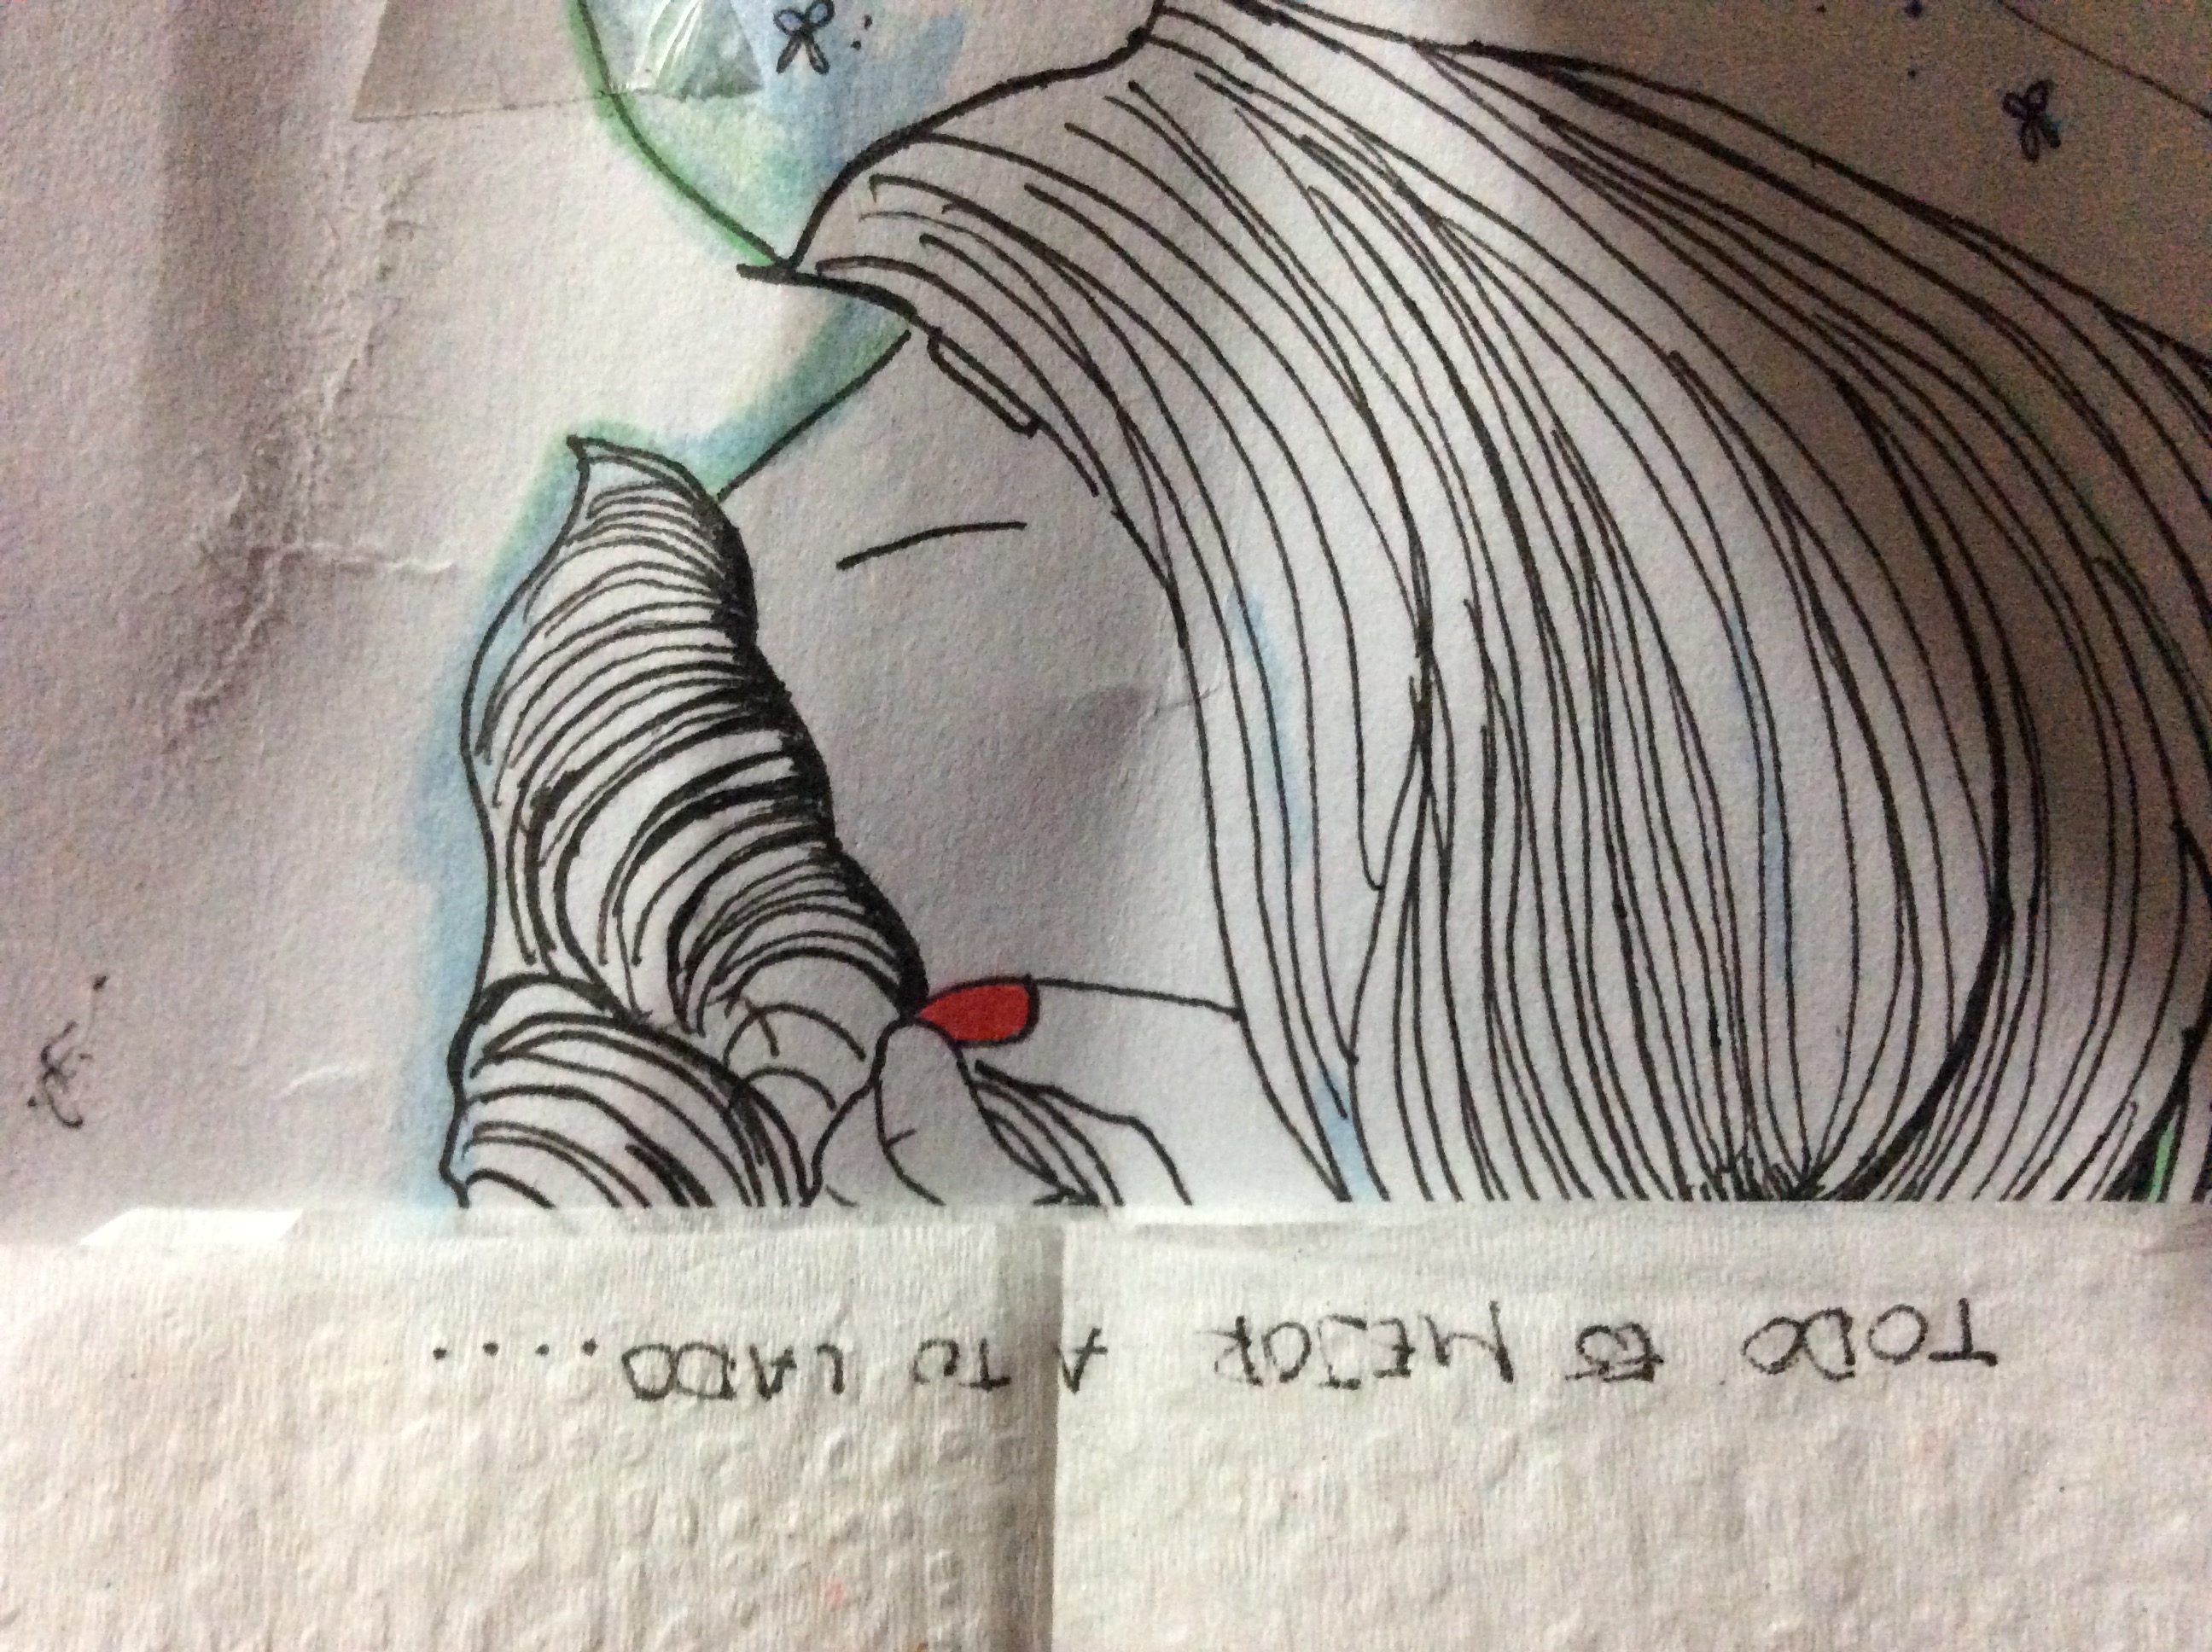 TODO ES MEJOR A TU LADO....